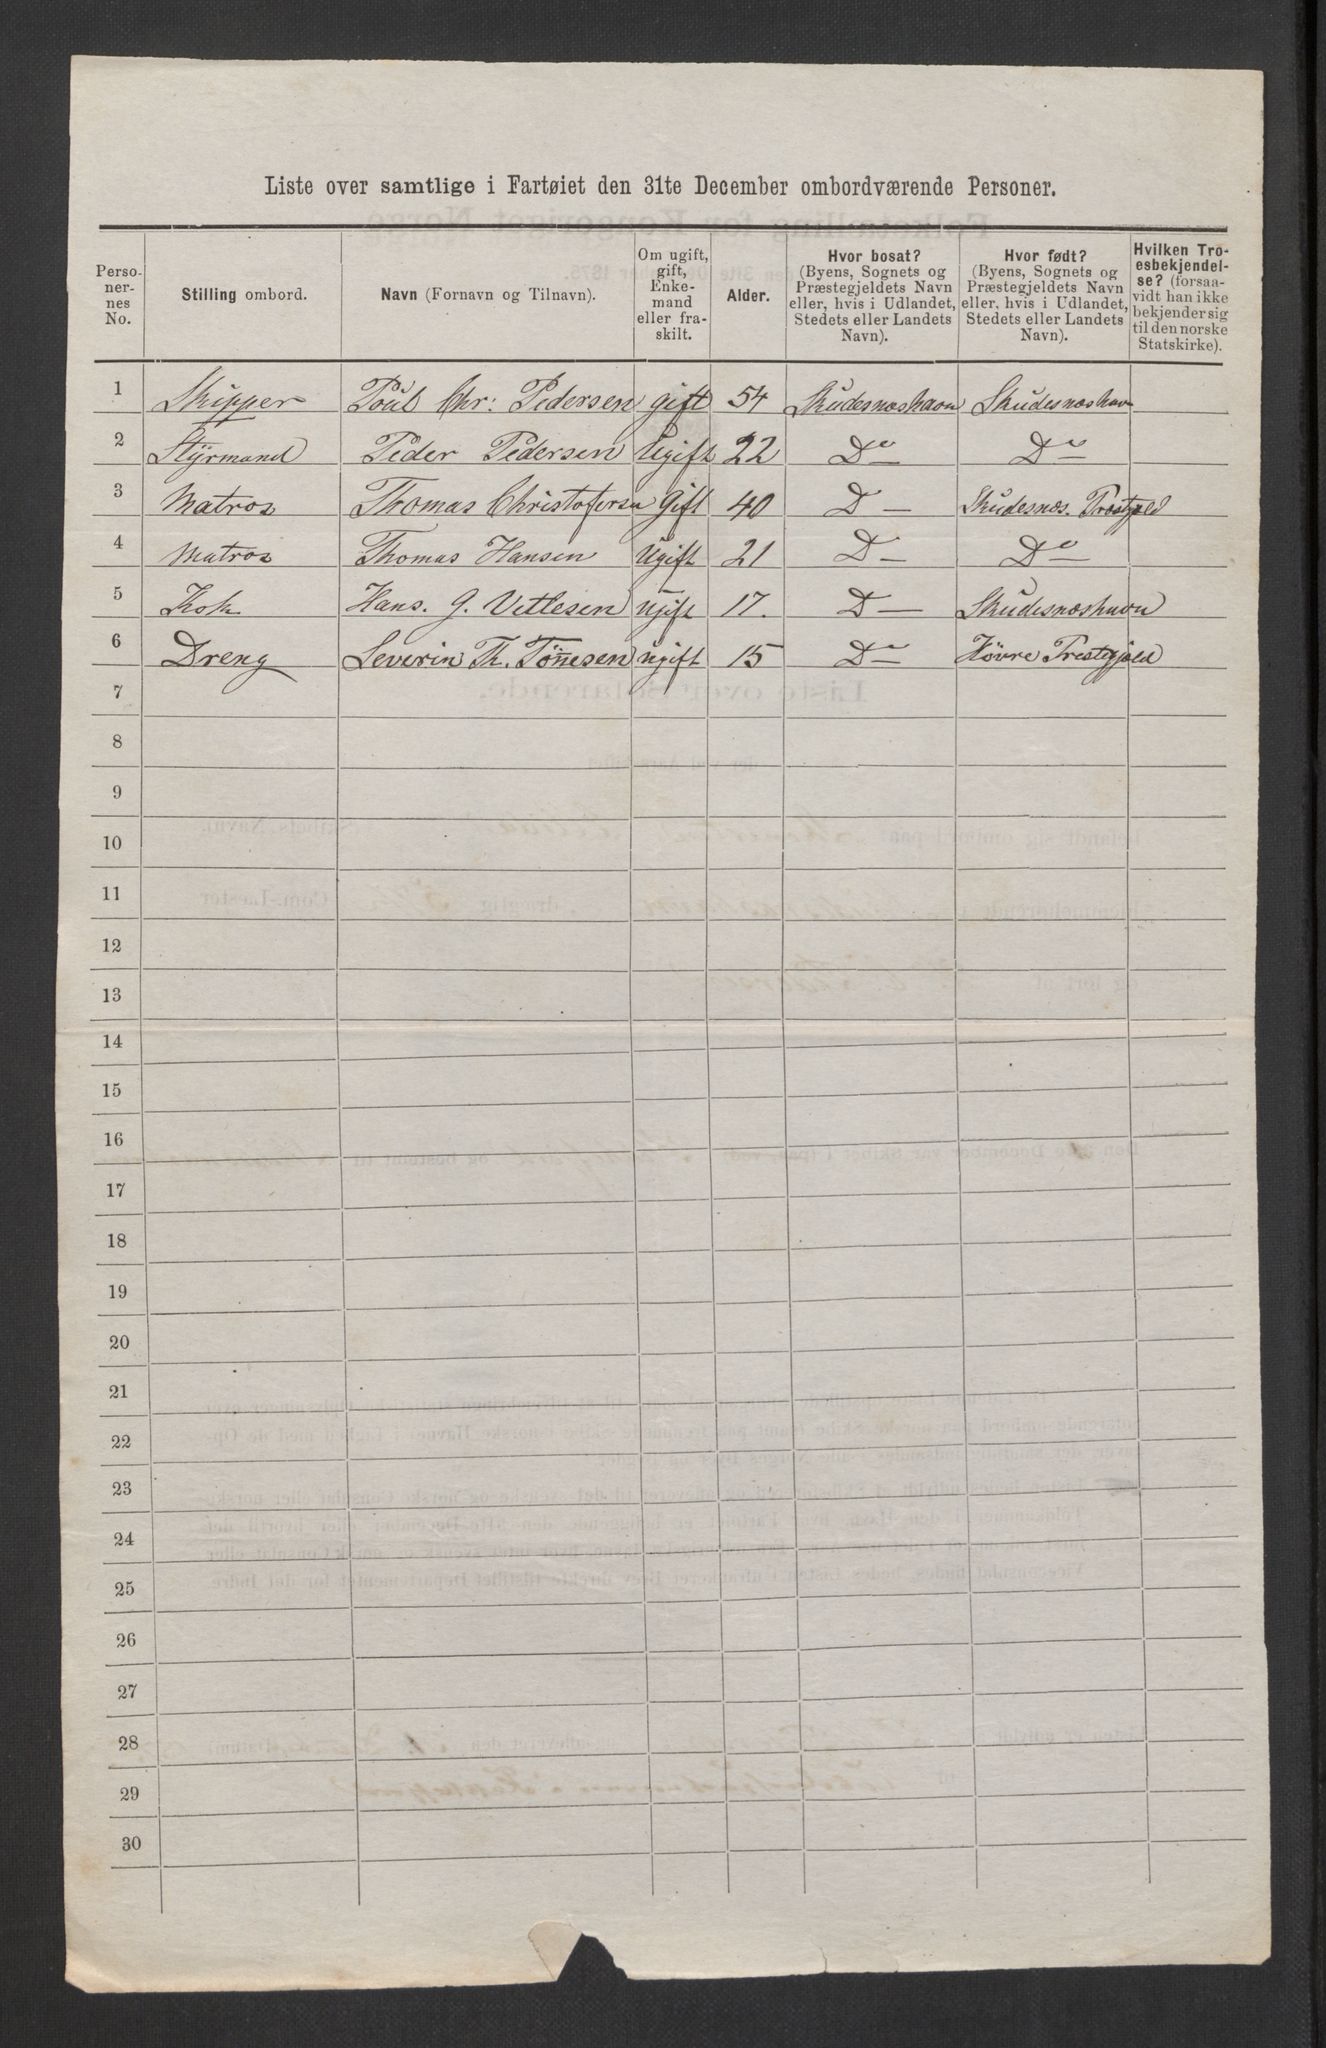 Liste over samtlige i Fartøiet den 31te December ombordværende Personer.
Perso-
ner-
nes
No.
Stilling ombord.
Navn (Fornavn og Tilnavn).
Om ugift,
gift,
Enke-
mand
eller fra-
skilt.
Alder.
Hvor bosat?
(Byens, Sognets og
Præstegjeldets Navn
eller, hvis i Udlandet,
Stedets eller Landets
Navn).
Hvor født?
(Byens, Sognets og
Præstegjeldets Navn
eller, hvis i Udlandet,
Stedets eller Landets
Navn).
Hvilken Tro-
esbekjendel-
se? (forsaa-
vidt han ikke
bekjender sig
til den norske
Statskirke).
1 Skipper Poul Chr: Pedersen gift 54 Skudesnæshavn Skudesnæshavn
2 Styrmand Peder Pedersen Ugift 22 Do Do
3 Matros Thomas Christofersn Gift 40 D— Skudesnæs. Præstgjeld
4 Matros Thomas Hansen Ugift 21 D— Do
5 Kok Hans. G. Vetlesen ugift 17. D— Skudesnæshavn
6 Dreng Severin Th. Tönnesen ugift 15 Do Hövre Prestegjeld
7
8
9
10
11
12
13
14
15
16
17
18
19
20
21
22
23
24
25
26
27
28
29
30